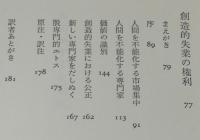 創造的失業の権利 77
まえがき 79
序 89
人間を不能化する市場集中 91
人間を不能化する専門家 113
価値の識別 144
創造的失業における公正 162
新しい専門家をだしぬく 167
脱専門的エトス 175
原注・訳注 178
訳者あとがき 181